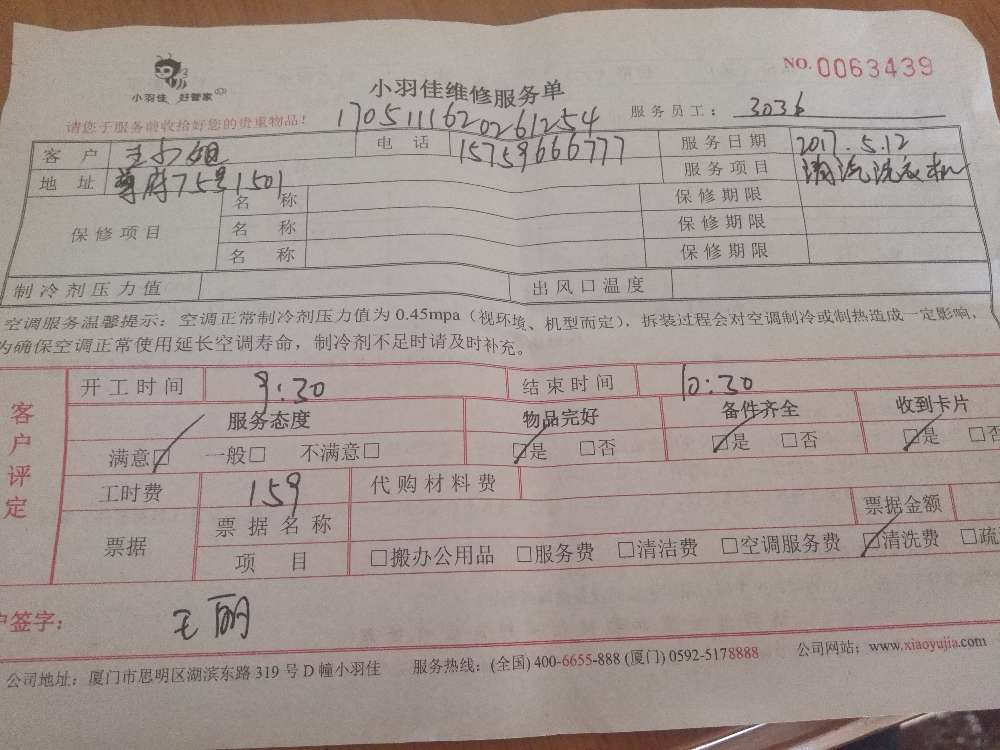 小羽佳 好管家
小羽佳维修服务单
NO. 0063439
请您于服务前收拾好您的贵重物品！
1705111620261254
服务员工： 3036
客户 王小姐 电话 15759666777 服务日期 2017.5.12
地址 尊府75号1501 服务项目 清洗洗衣机
保修项目 名称 保修期限
名称 保修期限
名称 保修期限
制冷剂压力值 出风口温度
空调服务温馨提示：空调正常制冷剂压力值为 0.45mpa（视环境、机型而定），拆装过程会对空调制冷或制热造成一定影响，
为确保空调正常使用延长空调寿命，制冷剂不足时请及时补充。
客户评定
开工时间 9:30 结束时间 10:30
服务态度 物品完好 备件齐全 收到卡片
满意☑ 一般□ 不满意□ ☑是 □否 ☑是 □否 ☑是 □否
工时费 159 代购材料费
票据 票据名称 票据金额
项目 □搬办公用品 □服务费 □清洁费 □空调服务费 ☑清洗费 □疏
户签字： 王丽
公司地址：厦门市思明区湖滨东路 319 号 D 幢小羽佳 服务热线：(全国) 400-6655-888 (厦门) 0592-5178888 公司网站：www.xiaoyujia.com